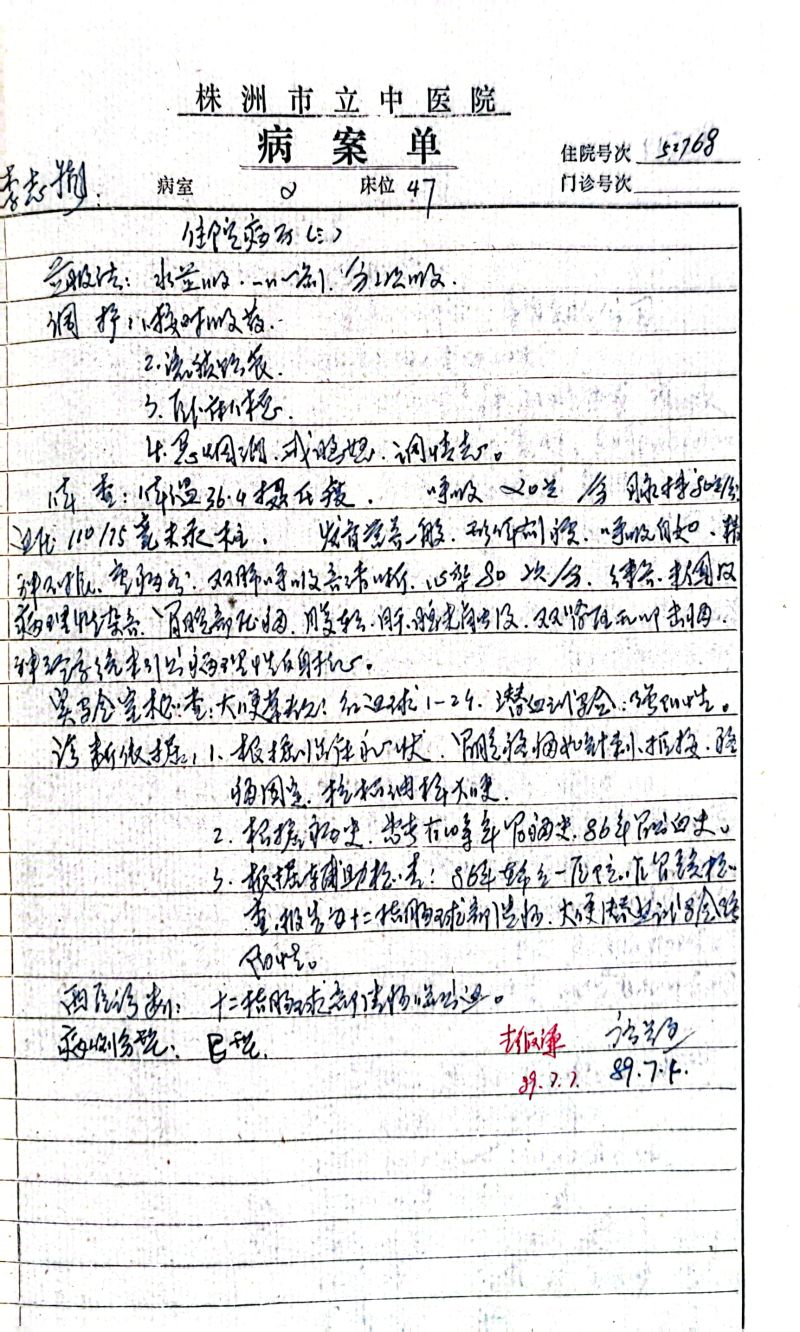 株洲市立中医院
病案单
住院号次 52768
病室 2 床位 47
门诊号次
住院病历(三)
煎服法：水煎服.一日一剂.分二次服.
调护：1.按时服药.
2.流质饮食.
3.卧床休息.
4.忌烟酒.戒恼怒.调情志。
体查：体温36.4摄氏度. 呼吸20次/分 脉搏80次/分
血压110/75毫米汞柱. 发育营养一般. 呼吸自如.精
神不振. 双肺呼吸音清晰.心率80次/分.律齐.未闻及
病理性杂音.胃脘部压痛.腹软.肝脾未触及.双肾区无叩击痛.
神经系统未引出病理性反射。
实验室检查：大便常规：红血球1-2个.潜血试验：强阳性。
诊断依据：1.根据临床症状.胃脘疼痛如针刺.拒按.疼
痛固定.柏油样大便.
2.根据病史.患者有10余年胃痛史.86年胃出血史。
3.根据辅助检查：86年 一医院作胃镜检
查.报告为十二指肠球部溃疡.大便潜血试验强
阳性。
西医诊断：十二指肠球部溃疡临出血。
病例分型：B型.
89.7.7. 89.7.4.